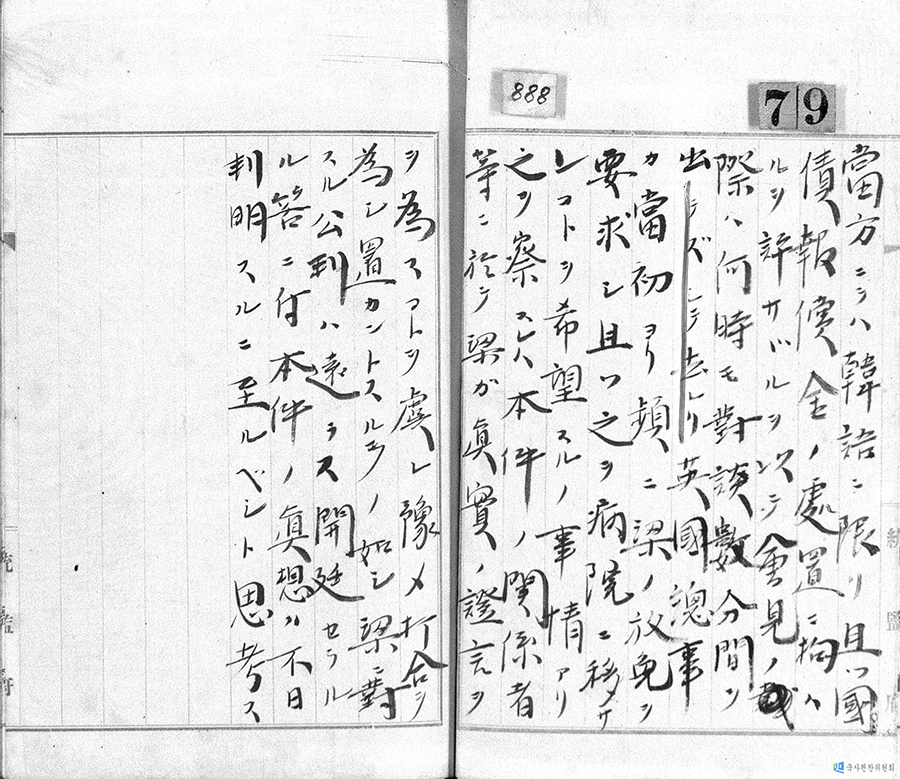 888
79
當方ニテハ韓語ニ限リ且ツ國
債報償金ノ處置ニ拘ハ
ルヲ許サバルヲ以テ會見ノ
際ハ何時モ對談數分間ヲ
出テズシテ去レリ英國總事
カ當初ヨリ頻ニ梁ノ放免ヲ
要求シ且ツ之ヲ病院ニ移サ
レコトヲ希望スルノ事情アリ
之ヲ察スレハ本件ノ関係者
等ニ於テ梁ガ眞實ノ證言ヲ
ヲ為スコトヲ虞レ豫メ打合ヲ
為シ置カントスルモノ如シ梁ニ對
スル公判ハ遠ラス開廷セラル
ル筈ニ付本件ノ眞想ハ不日
判明スルニ至ルベシト思考ス
統監府
統監府
국사편찬위원회